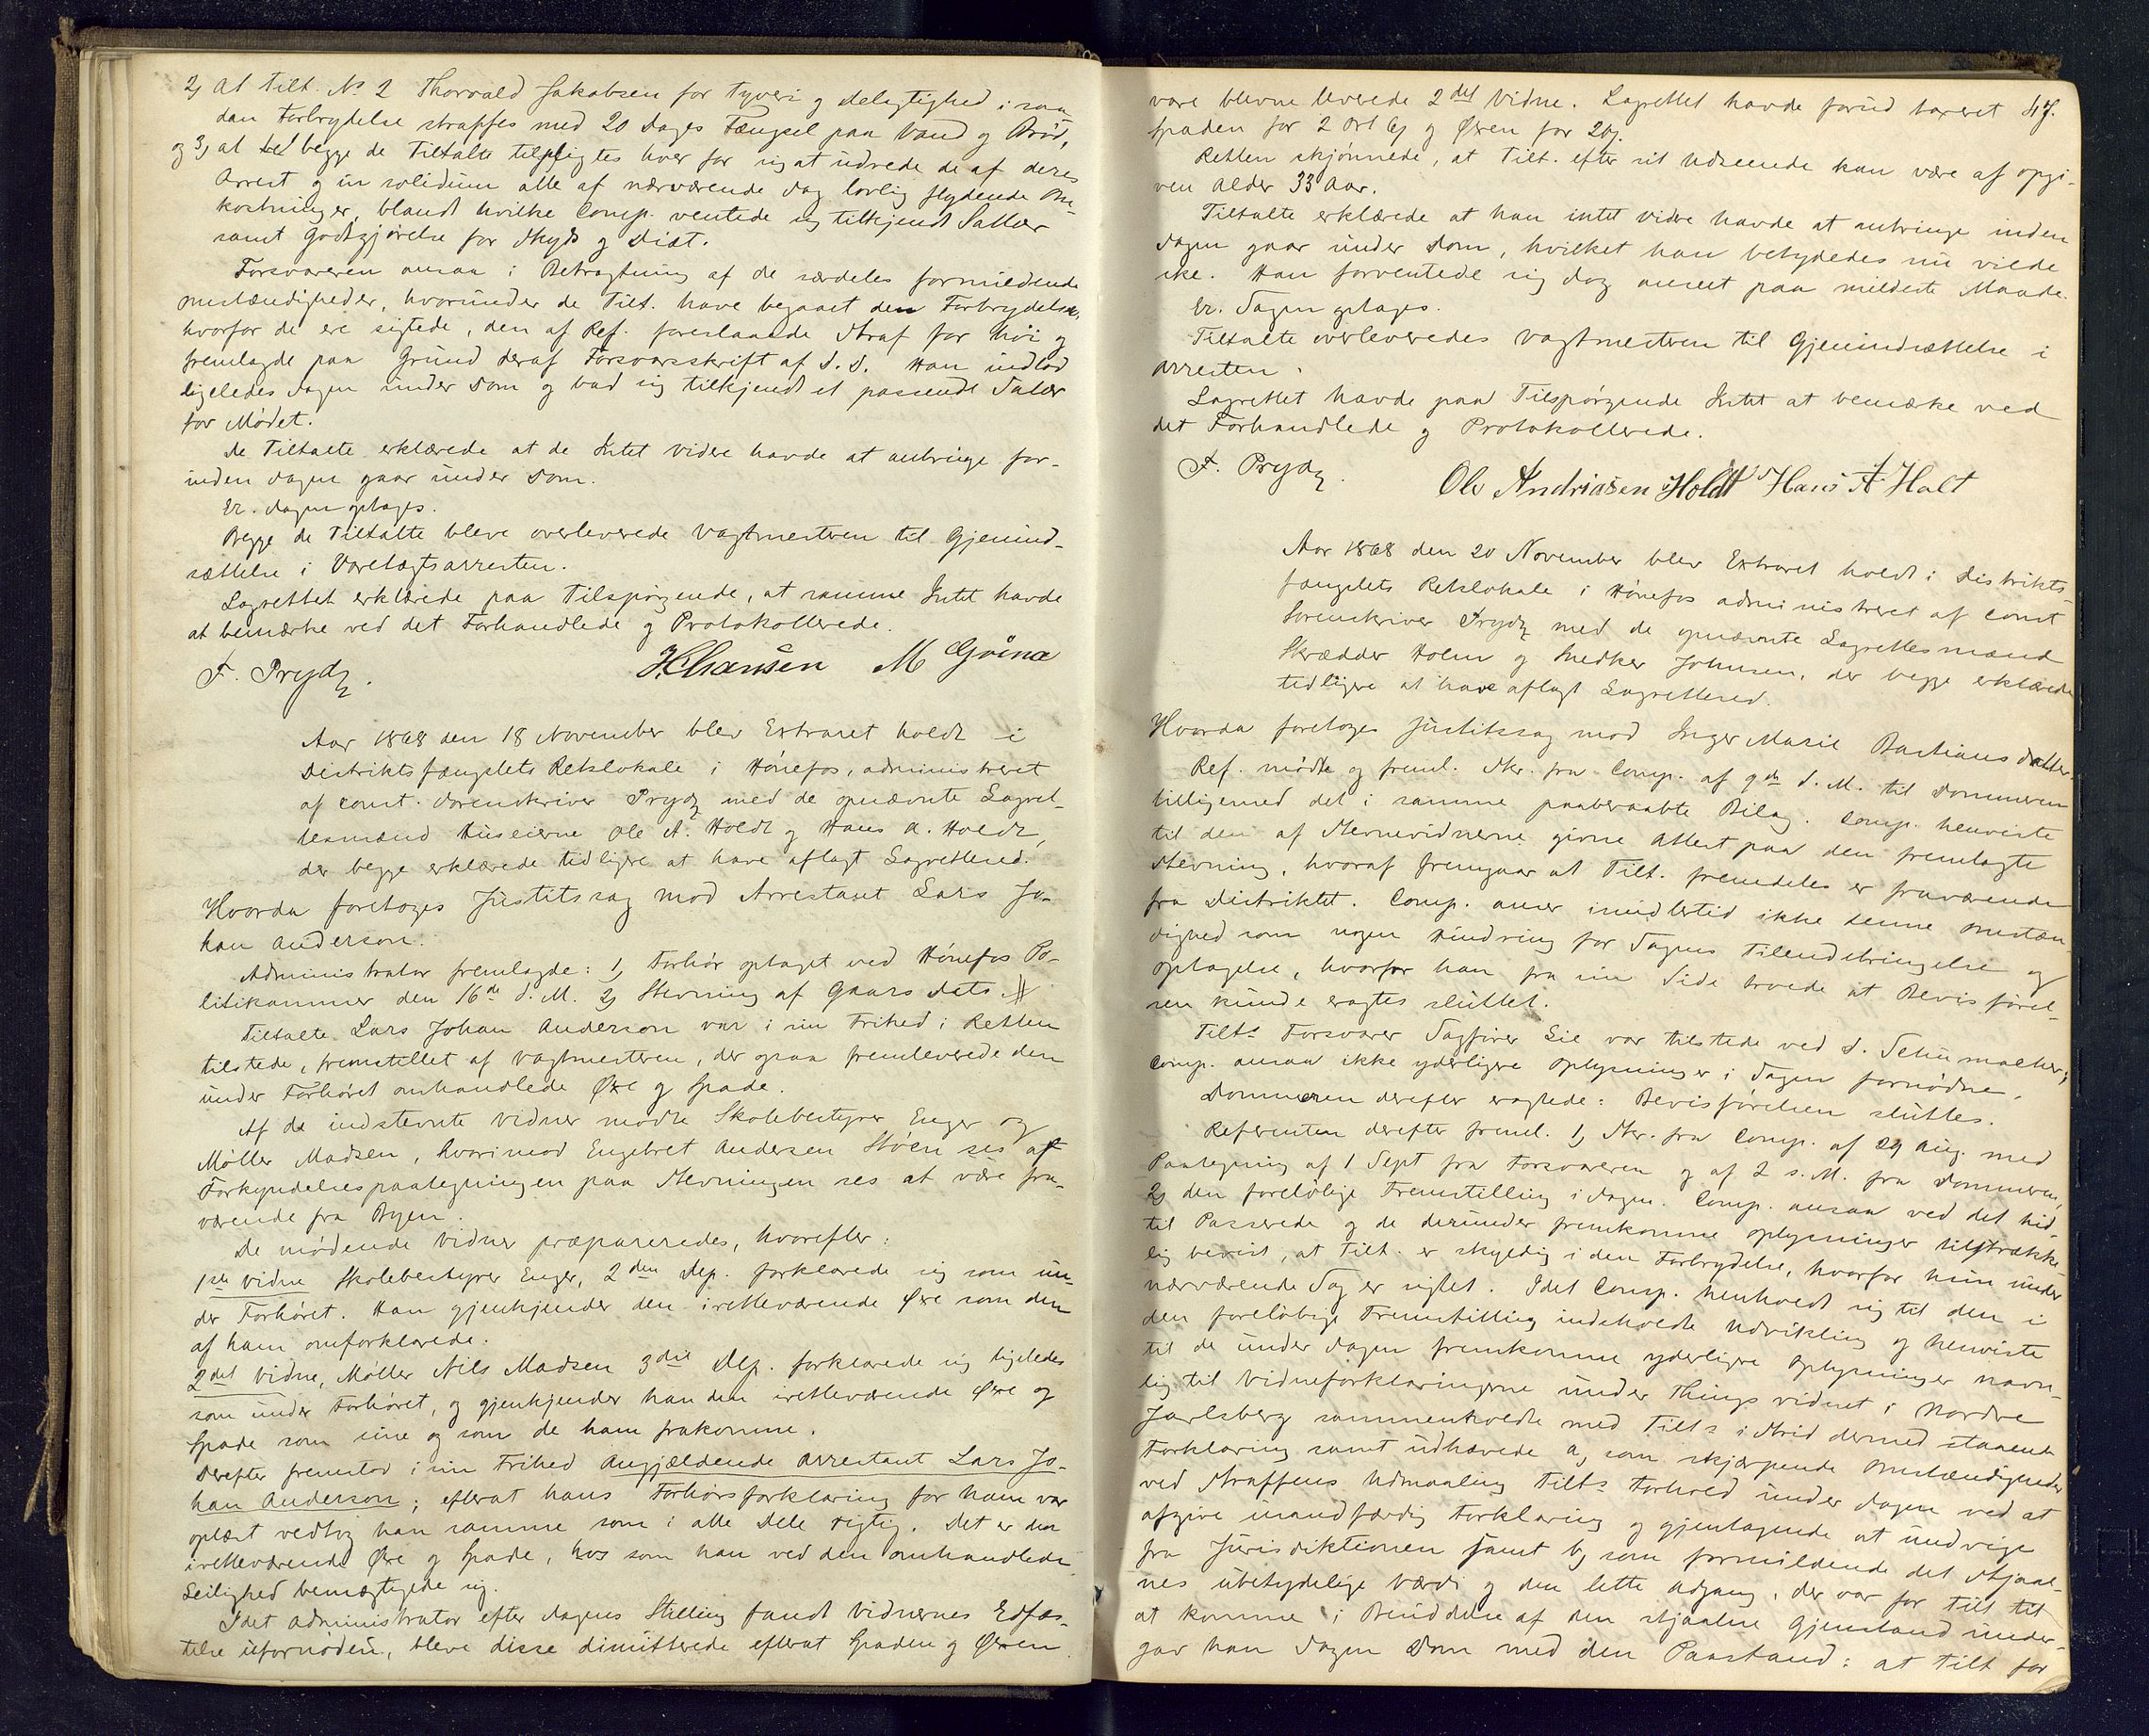 2, at Tilt. No 2 Thorvald Jakobsen for Tyveri og Delagtighed i saa
dan Forbrydelse straffes med 20 Dages Fængsel paa Vand og Brød,
og 3, at begge de Tiltalte tilpligtes hver for sig at udrede de af deres
Arrest og in solidum alle af nærværende Sag lovlig flydende Om-
kostninger, blandt hvilke Comp. ventede sig tilkjendt Sallær
samt Godtgjørelse for Skyds og Diæt.
Forsvareren ansaa i Betragtning af de særdeles formildende
Omstændigheder, hvorunder de Tilt. have begaaet den Forbrydelse,
hvorfor de ere sigtede, den af Ref. foreslaaede Straf for høi og
fremlagde paa Grund deraf Forsvarsskrift af D. D. Han indlod
ligeledes Sagen under Dom og bad sig tilkjendt et passende Salær
for Mødet.
De Tiltalte erklærede at de Intet videre havde at anbringe for-
inden Sagen gaar under Dom.
Er. Sagen optages.
Begge de Tiltalte bleve overleverede Vagtmesteren til Gjenind-
sættelse i Varetægtsarresten.
Lagrettet erklærede paa Tilspørgende, at samme Intet havde
at bemærke ved det Forhandlede og Protokollerede.
F. Prydz. HChansen M Gvina
Aar 1868 den 18 November blev Extraret holdt i
Distriktsfængslets Retslokale i Hønefos, administreret
af const. Sorenskriver Prydz med de opnævnte Lagret-
tesmænd Huseierne Ole A. Holdt og Hans A. Holdt,
der begge erklærede tidligere at have aflagt Lagretteed.
Hvorda foretoges Justitssag mod Arrestant Lars Jo-
han Anderson.
Administrator fremlagde: 1, Forhør optaget ved Hønefos Po-
litikammer den 16de d. M. 2, Stevning af Gaars Dato.
Tiltalte Lars Johan Anderson var i sin Frihed i Retten
tilstede, fremstillet af Vagtmesteren, der ogsaa fremleverede den
under Forhøret omhandlede Øxe og Spade.
Af de indstevnte Vidner mødte Skolebestyrer Enger og
Møller Madsen, hvorimod Engebret Andersen Støen ses af
Forkyndelsespaategningen paa Stevningen ses at være fra-
værende fra Byen.
De mødende Vidner præpareredes, hvorefter:
1ste Vidne Skolebestyrer Enger, 2den Dep. forklarede sig som un-
der Forhøret. Han gjenkjender den iretteværende Øxe som den
af ham omforklarede.
2det Vidne, Møller Nils Madsen 3die Dep. forklarede sig ligeledes
som under Forhøret, og gjenkjender han den iretteværende Øxe og
Spade som sine og som de ham frakomne.
Derefter fremstod i sin Frihed Angjældende Arrestant Lars Jo-
han Anderson; efterat hans Forhørsforklaring for ham var
oplæst vedtog han samme som i alle Dele rigtig. Det er den
iretteværende Øxe og Spade, som han ved den omhandlede
Leilighed bemægtigede sig.
Idet Administrator efter Sagens Stilling fandt Vidnernes Edfæs-
telse ufornøden, bleve disse dimitterede efterat Spaden og Øxen
vare blevne leverede 2det Vidne. Lagrettet havde forud taxeret
Spaden for 2 Ort og Øxen for
Retten skjønnede, at Tilt. efter sit Udseende kan være af opgi-
ven Alder 33 Aar.
Tiltalte erklærede at han intet videre havde at anbringe inden
Sagen gaar under Dom, hvilket han betydedes nu vilde
ske. Han forventede sig dog anseet paa mildeste Maade.
Er. Sagen optages.
Tiltalte overleveredes Vagtmesteren til Gjenindsættelse i
Arresten.
Lagrettet havde paa Tilspørgende Intet at bemærke ved
det Forhandlede og Protokollerede.
F. Prydz. Ole Andriasen Holdt Hans A Holt
Aar 1868 den 20 November blev Extraret holdt i Distrikts-
fængslets Retslokale i Hønefos administreret af const
Sorenskriver Prydz med de opnævnte Lagrettesmænd
Skrædder Holm og Snedker Johnsen, der begge erklærede
tidligere at have aflagt Lagretteed.
Hvorda foretoges Justitssag mod Inger Marie Bastiansdatter.
Ref. mødte og freml. Skr. fra Comp. af 9de d. M. til Dommeren
tilligemed det i samme paaberaabte Bilag. Comp. henviste
til den af Stevnevidnerne givne Attest paa den fremlagte
Stevning, hvoraf fremgaar at Tilt. fremdeles er fraværende
fra Distriktet. Comp. anser imidlertid ikke denne Omstæn
dighed som nogen Hindring for Sagens Tilendebringelse og
Optagelse, hvorfor han fra sin Side troede at Bevisførel-
sen kunde eragtes sluttet.
Tilts Forsvarer Sagfører Lie var tilstede ved S. Schumacher;
Comp. ansaa ikke yderligere Oplysninger i Sagen fornødne.
Dommeren derefter eragtede: Bevisførelsen sluttes.
Referenten derefter freml. 1, Skr. fra Comp. af 29 Aug. med
Paategning af 1 Sept fra Forsvareren og af 2 s. M. fra Dommeren,
2, den foreløbige Fremstilling i Sagen. Comp. ansaa ved det hid
til Passerede og de derunder fremkomne Oplysninger tilstrække-
lig bevist, at Tilt. er skyldig i den Forbrydelse, hvorfor hun under
nærværende Sag er sigtet. Idet Comp. henholdt sig til den i
den foreløbige Fremstilling indeholdte Udvikling og henviste
til de under Sagen fremkomne yderligere Oplysninger navn-
lig til Vidneforklaringerne under Thingsvidnet i Nordre
Jarlsberg sammenholdte med Tilts i Strid dermed staaende
Forklaring samt udhævede a, som skjærpende Omstændigheder
ved Straffens Udmaaling Tilts Forhold under Sagen ved at
afgive usandfærdig Forklaring og gjentagende at undvige
fra Jurisdiktionen samt b, som formildende det Stjaal-
nes ubetydelige Værdi og den lette Adgang, der var for Tilt til
at komme i Besiddelse af den stjaalne Gjenstand under-
gav han Sagen Dom med den Paastand: at Tilt for